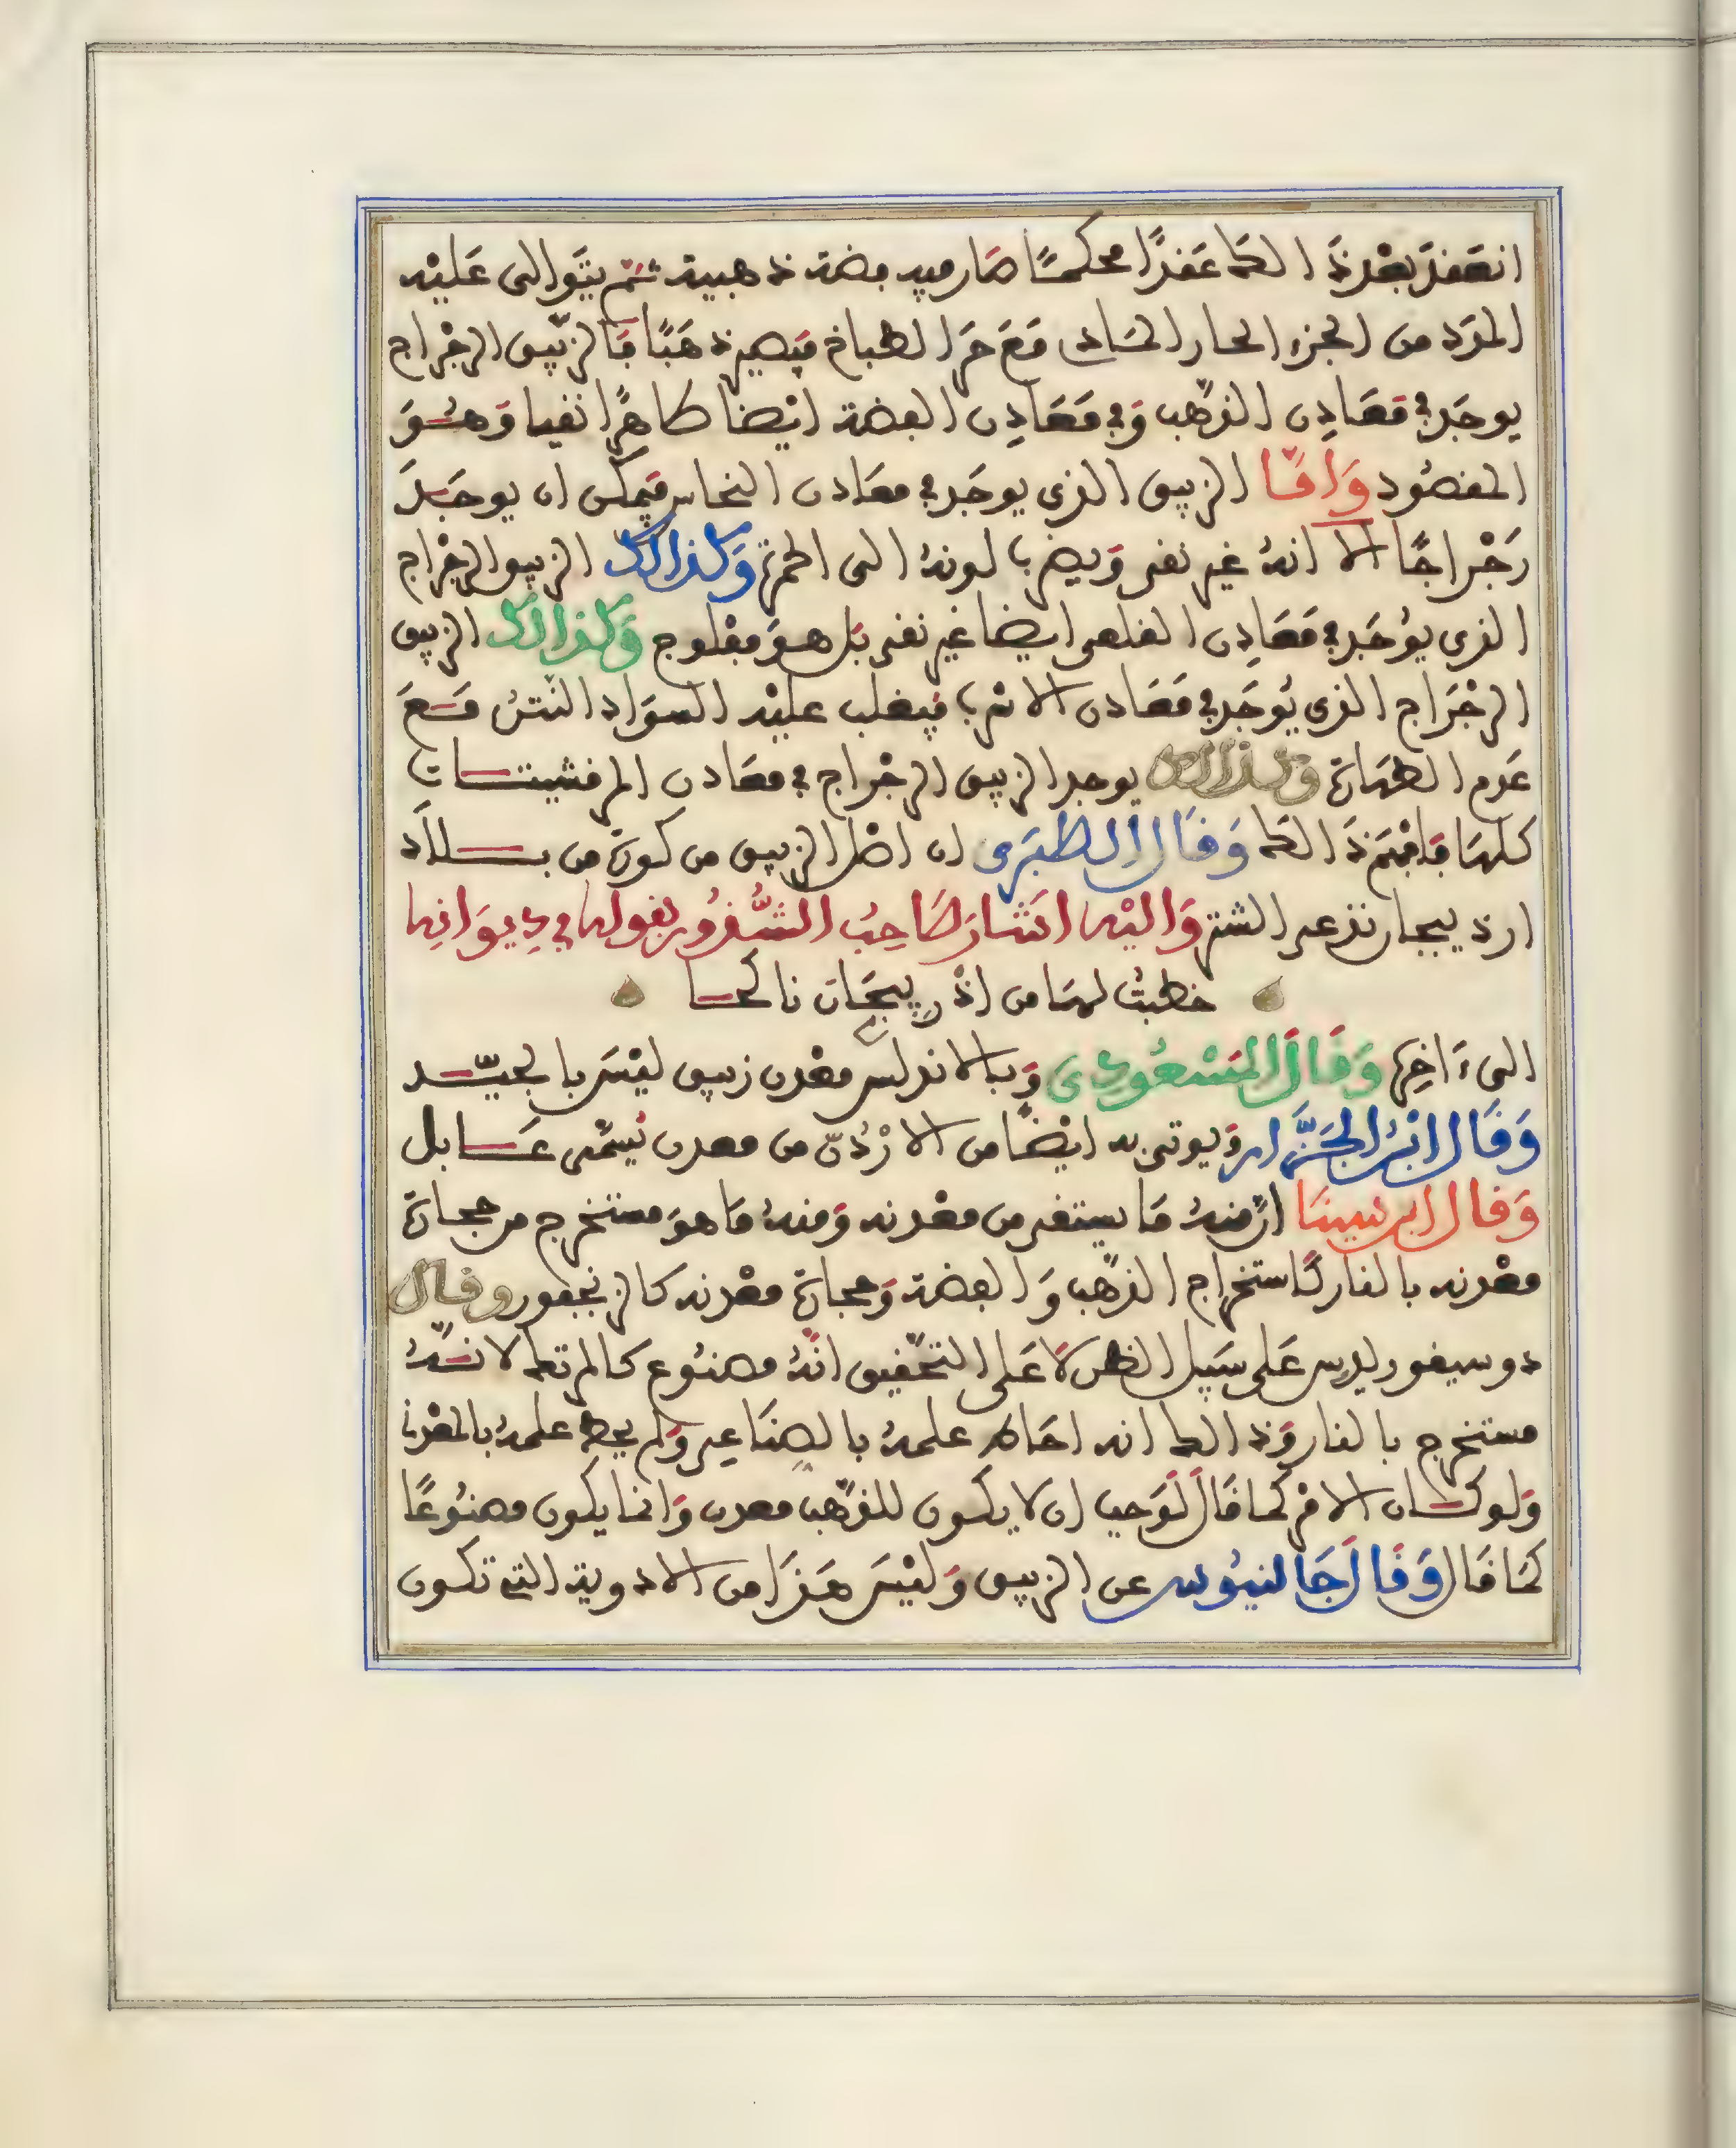 انعَقدَ بعْدَ ذَالكَ عَقدًا محكمًا صَار فيه فضة ذهبية ثمّ يتَوالى عَليْه
المدَد من الجزء الحار الحَاد مَعَ حَر الطباخ فيَصير ذهَبًا فَالزّيبق الرجْراج
يوجَد في مَعَادِن الذّهب وَفي مَعَادِن الفضة ايْضا طاهِرًا نقيا وَهُوَ
المقصُود وَأمّا الزيبق الذي يوجَد في معَادن النحاس فيَمكن ان يوجَدَ
رَجْراجًا الا انهُ غير نقي وَيضرب لونهُ الى الحمرَة وَكذالك الزيبق الرجْراج
الذي يُوجَد في مَعَادِن القلعى ايضا غير نقي بَل هوَ مفْلوج وَكذالك الزيبق
الرجْرَاج الذي يُوجَد في مَعَادن الاسْرب فيَغلب عليْه السوَاد النّتنُ مَعَ
عَدم الطهَارَة وَكذالك يوجد الزيبق الرجْراج في معَادن المرقشيتات
كلهَا فافهَم ذَالك وَقَال الطبَرى ان اصْل الزيبق من كورَة من بلاَد
اردبيجان تدعى الشتر وَاليْه اشَار صَاحِبُ الشُّذُور بقوله في دِيوَانِه
خطبتُ لهَا من اذْربيجَان ناكحا
الى ءَاخِرِهَا وَقَالَ المَسْعُودِى وَبالاندلس معْدن زيبق ليْسَ بالجيّد
وَقَال ابْنُ الجَزَّار وَيوتى به ايْضًا من الارْدُنّ من معدن يُسَمّى عَابل
وَقَال ابن سينَا انّ منهُ مَا يستقى من معْدنه وَمنهُ مَا هوَ مستخرج من حجارَة
معْدنه بالنار كَاستخراج الذّهب وَالفضة وَحجارَة معْدنه كالزنجفور وقال
دوسيقوريدس عَلى سَبيل الظن لاَ عَلى التحْقيق انّهُ مصنُوع كالمرتك لانّهُ
مستخرج بالنار وَذالك انه احَاط علمهُ بالصنَاعِى وَلم يحط علمهُ بالمعْدني
وَلو كان الامْر كمَا قَالَ لوَجب ان لا يكون للذّهب معدن وَانما يكون مصنُوعًا
كمَا قَال وَقَالَ جَالنيُوس عن الزيبق وَليْسَ هَذَا من الادوية التي تكون